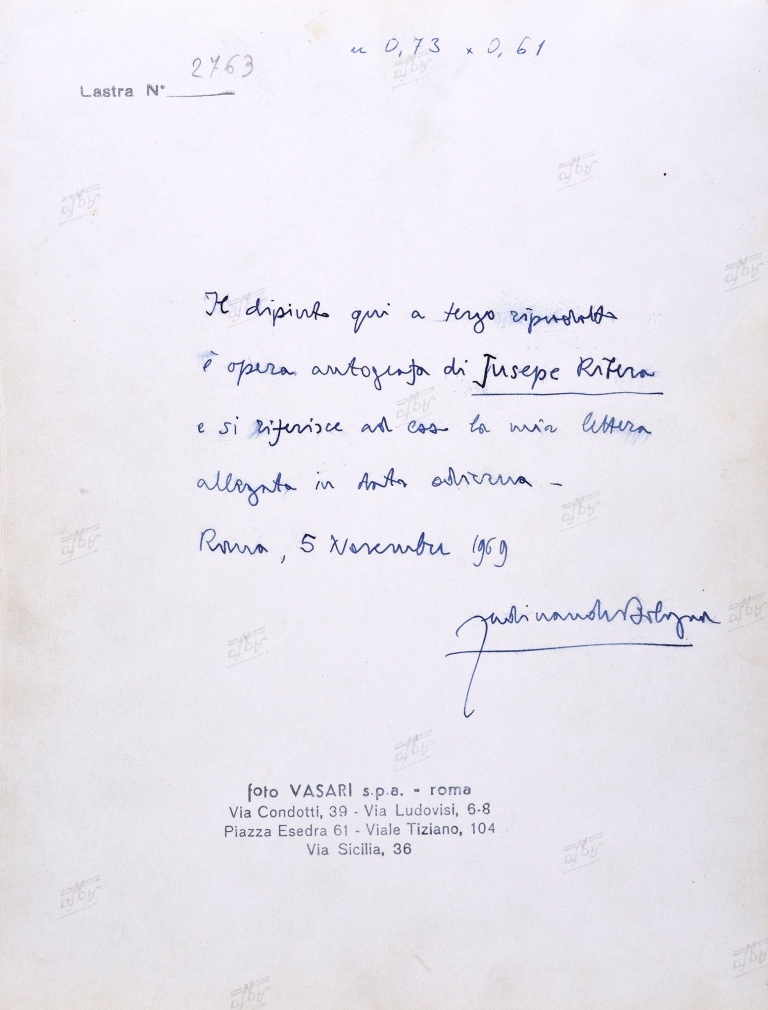 m 0,73 x 0,61
2763
Lastra N°
Il dipinto qui a tergo riprodotto
è opera autografa di Jusepe Ribera
e si riferisce ad esso la mia lettera
allegata in data odierna -
Roma, 5 Novembre 1969
Ferdinando Bologna
foto VASARI s.p.a. - roma
Via Condotti, 39 - Via Ludovisi, 6-8
Piazza Esedra 61 - Viale Tiziano, 104
Via Sicilia, 36
Agfa